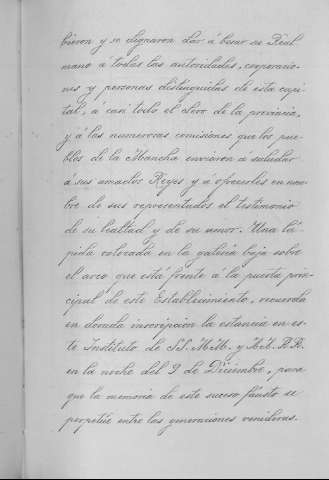 bieron y se dignaron dar á besar su Real
mano á todas las autoridades, corporacio-
nes y personas distinguidas de esta capi-
tal, á casi todo el clero de la provincia,
y á las numerosas comisiones que los pue-
blos de la Mancha enviaron á saludar
á sus amados Reyes y á ofrecerles en nom-
bre de sus representados el testimonio
de su lealtad y de su amor. Una lá-
pida colocada en la galería baja sobre
el arco que está frente á la puerta prin-
cipal de este Establecimiento, recuerda
en dorada inscripcion la estancia en es-
te Instituto de SS. M.M. y A.A. R.R.
en la noche del 9 de Diciembre, para
que la memoria de este suceso fausto se
perpetúe entre las generaciones venideras.